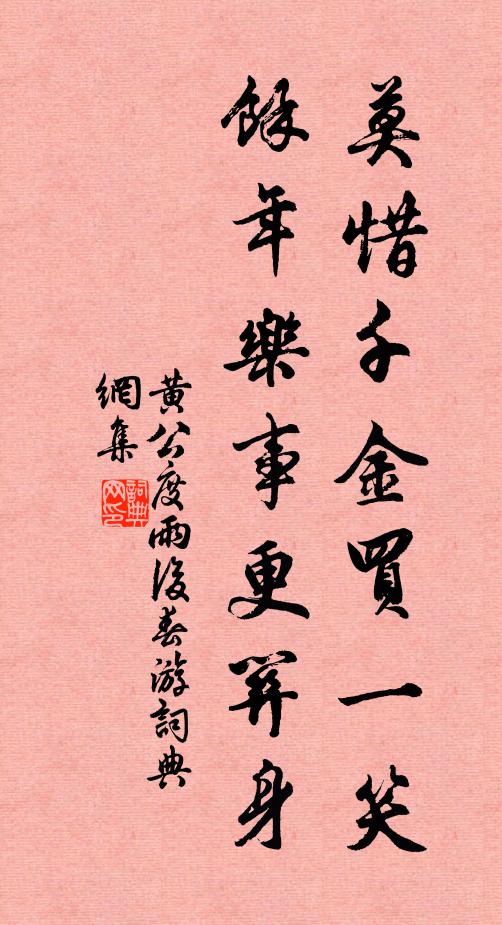 莫惜千金買一笑
餘年樂事更關身
黄公度雨後春游詞典
網集
詞典
网印